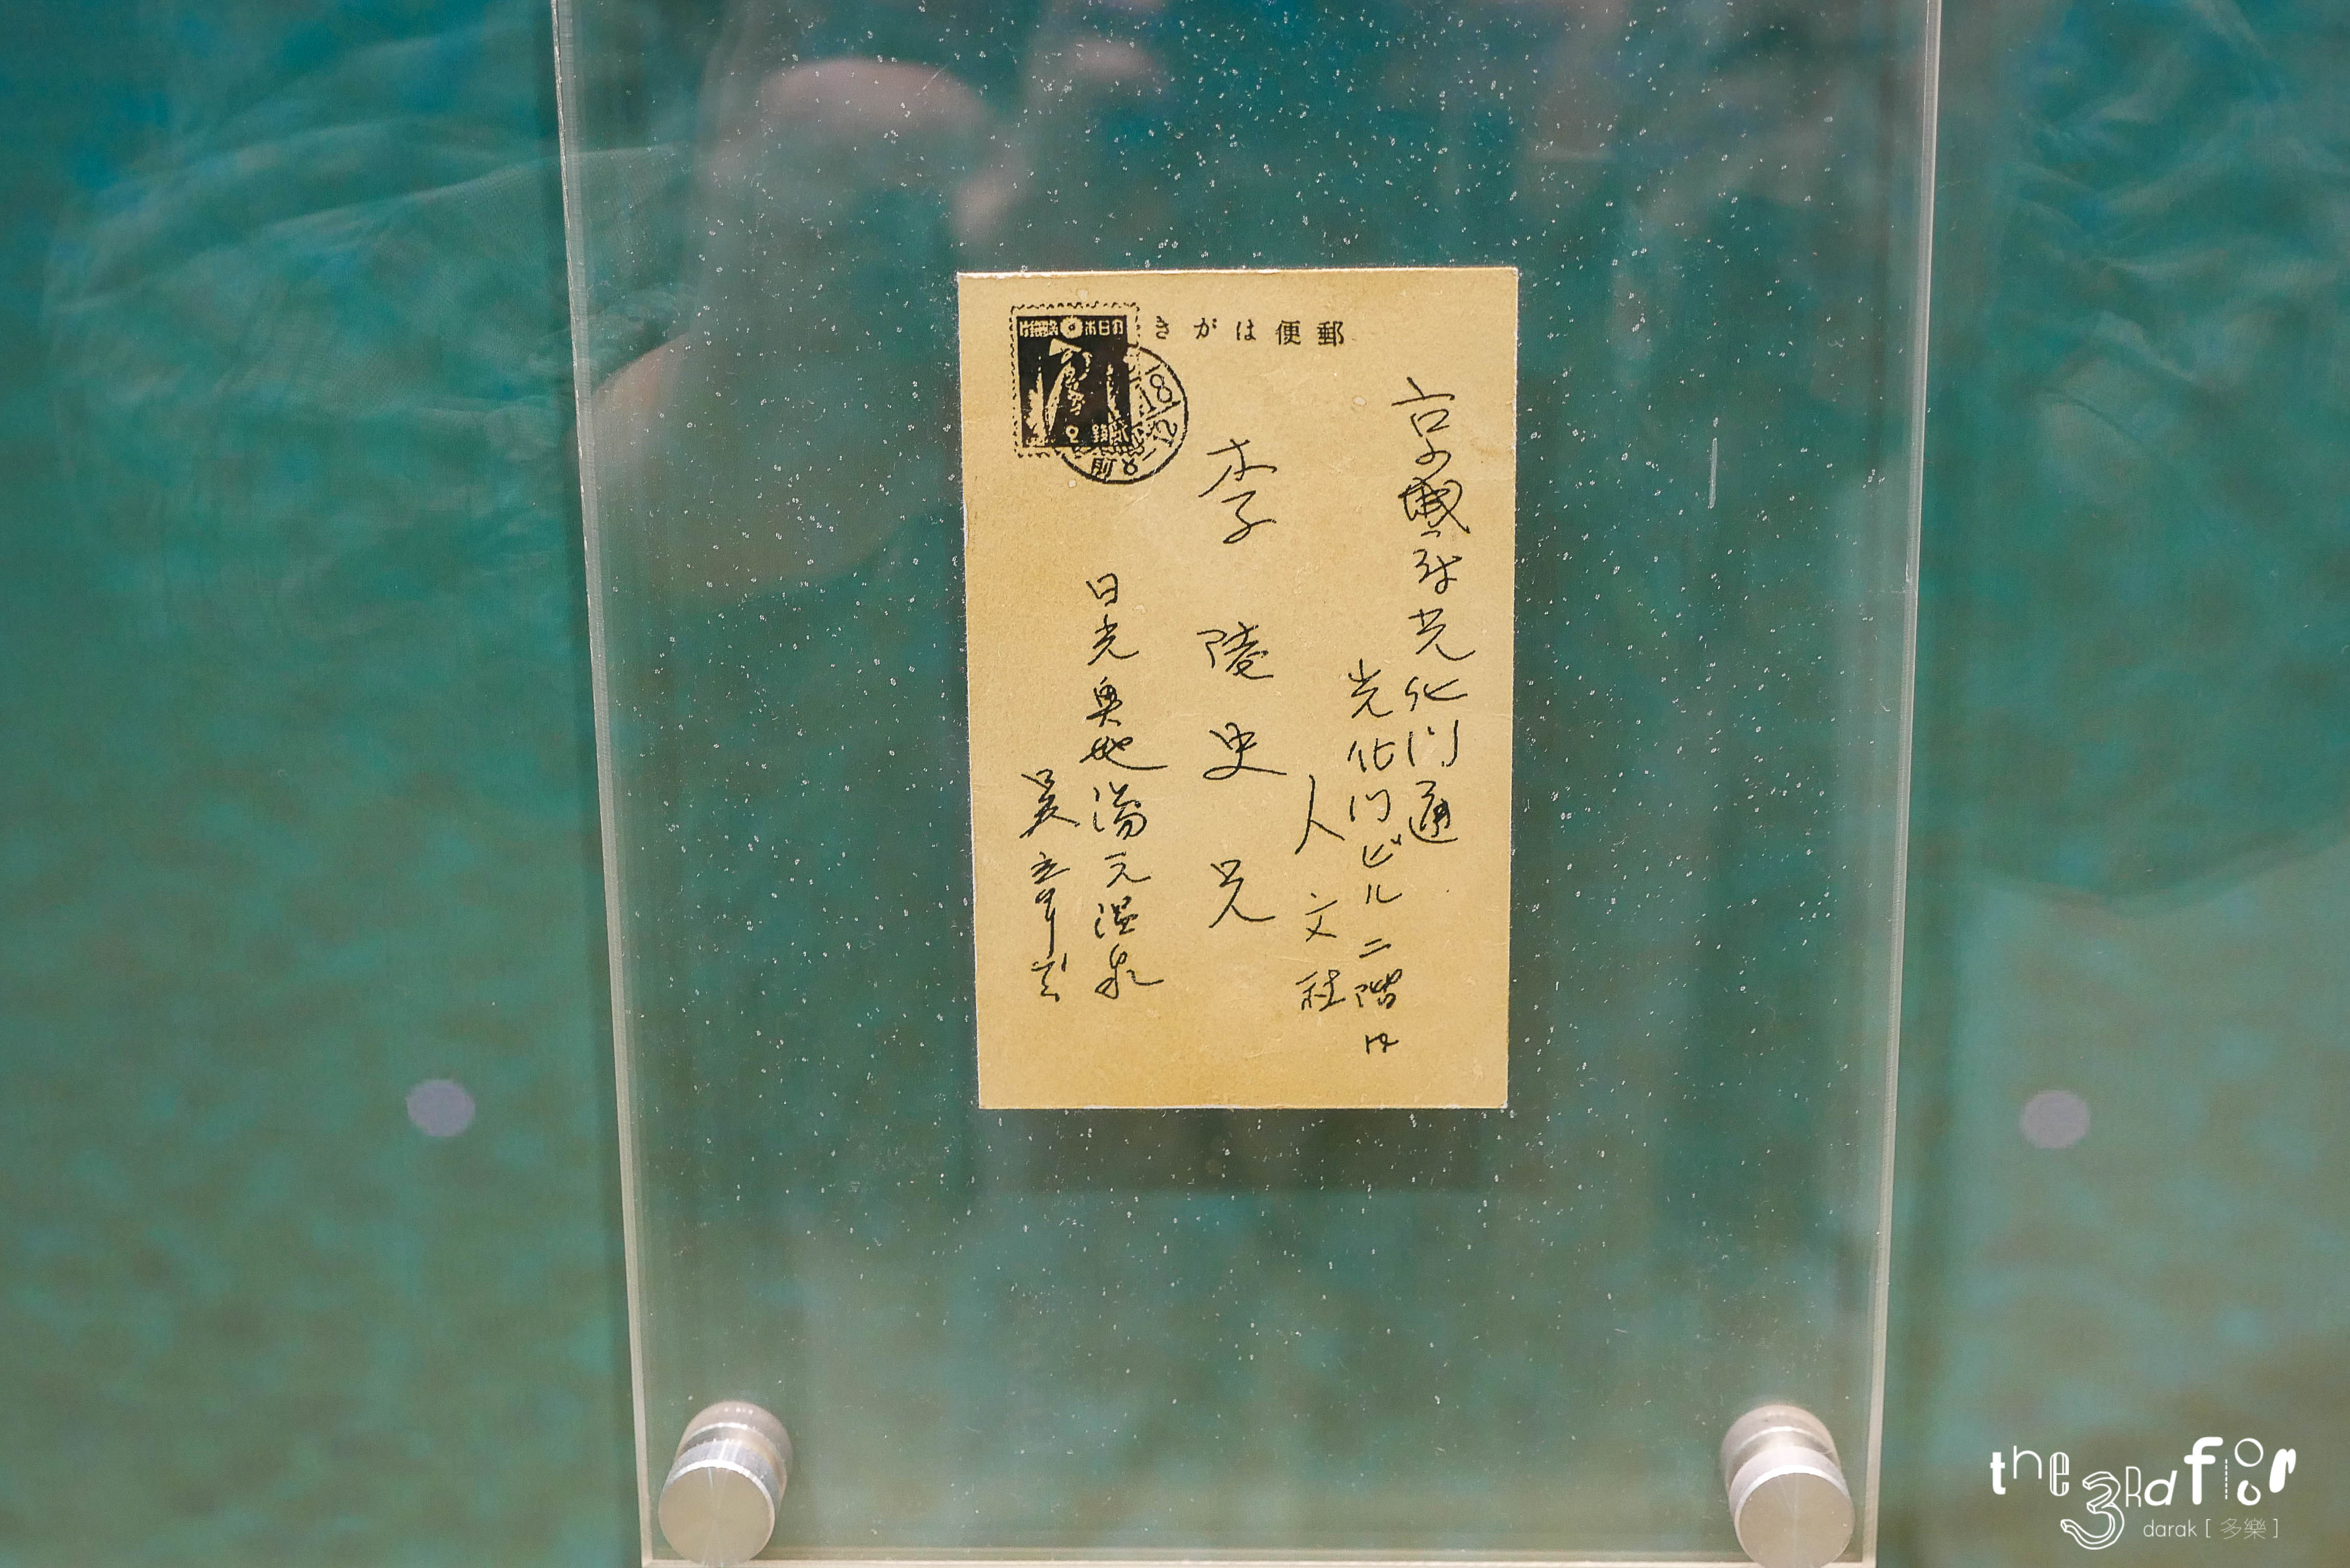 郵便はがき
京城府光化門通
光化門ビル二階内
人文社
李陸史兄
日光奥地湯元温泉
吳章
18
前8
the 3Rd floor
darak [ 多樂 ]